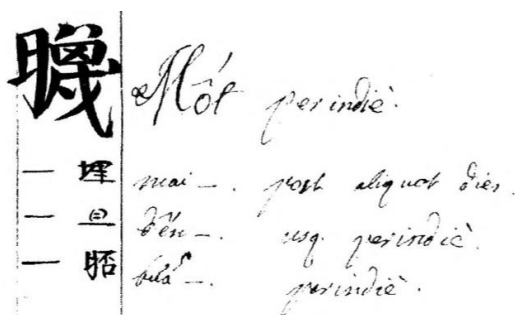 Mốt perindiè.
— mai —. post aliquot dies.
— 旦 đến —. usq. perindiè.
— bữa —. perindiè.